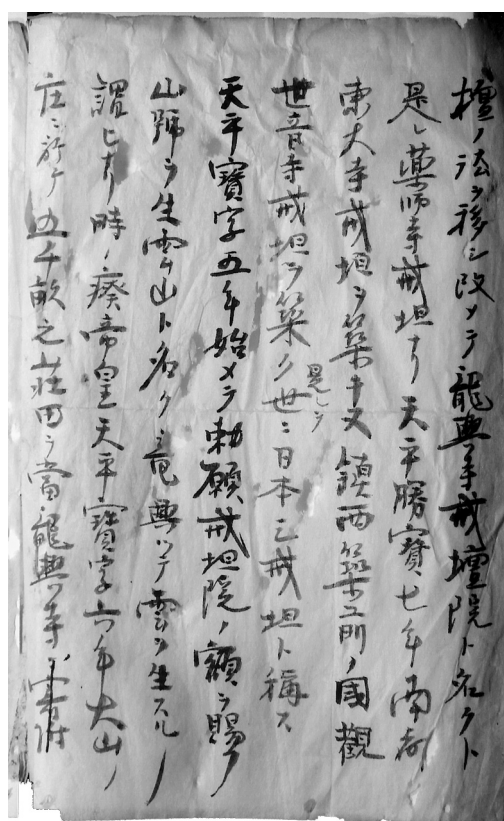 壇ノ法ヲ移シ改メテ龍興寺戒壇院ト名クト
是レ薬師寺戒坦ナリ天平勝寶七年南都
東大寺戒坦ヲ築キ又鎮西筑前ノ國觀
世音寺戒坦ヲ築ク世ニ是レヲ日本三戒坦ト稱ス
天平寶字五年始メテ勅願戒坦院ノ額ヲ賜フ
山號ヲ生雲山ト名ク竜興ツテ雲ヲ生スル
謂ヒナリ時ノ癈帝皇天平寶字六年大山ノ
庄ニ於テ五千畝之荘田ヲ當龍興寺ヘ寄附